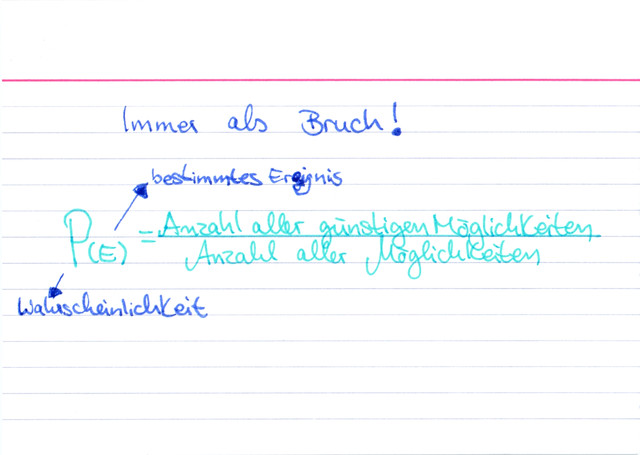 Immer als Bruch!
bestimmtes Ereignis
P(E) = Anzahl aller günstigen Möglichkeiten
Anzahl aller Möglichkeiten
Wahrscheinlichkeit